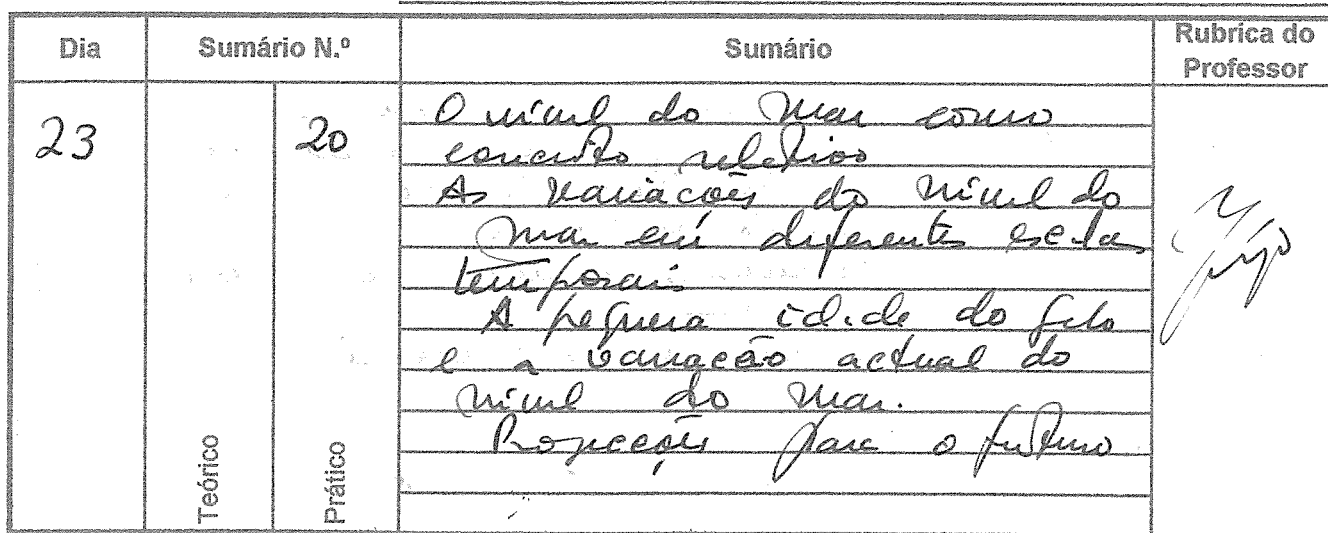 Dia Sumário N.º Sumário Rubrica do Professor
23 20 O nível do mar como
conceito relativo
As variações do nível do
mar em diferentes escalas
temporais
A pequena idade do gelo
e a variação actual do
nível do mar.
Projecções para o futuro
Teórico Prático